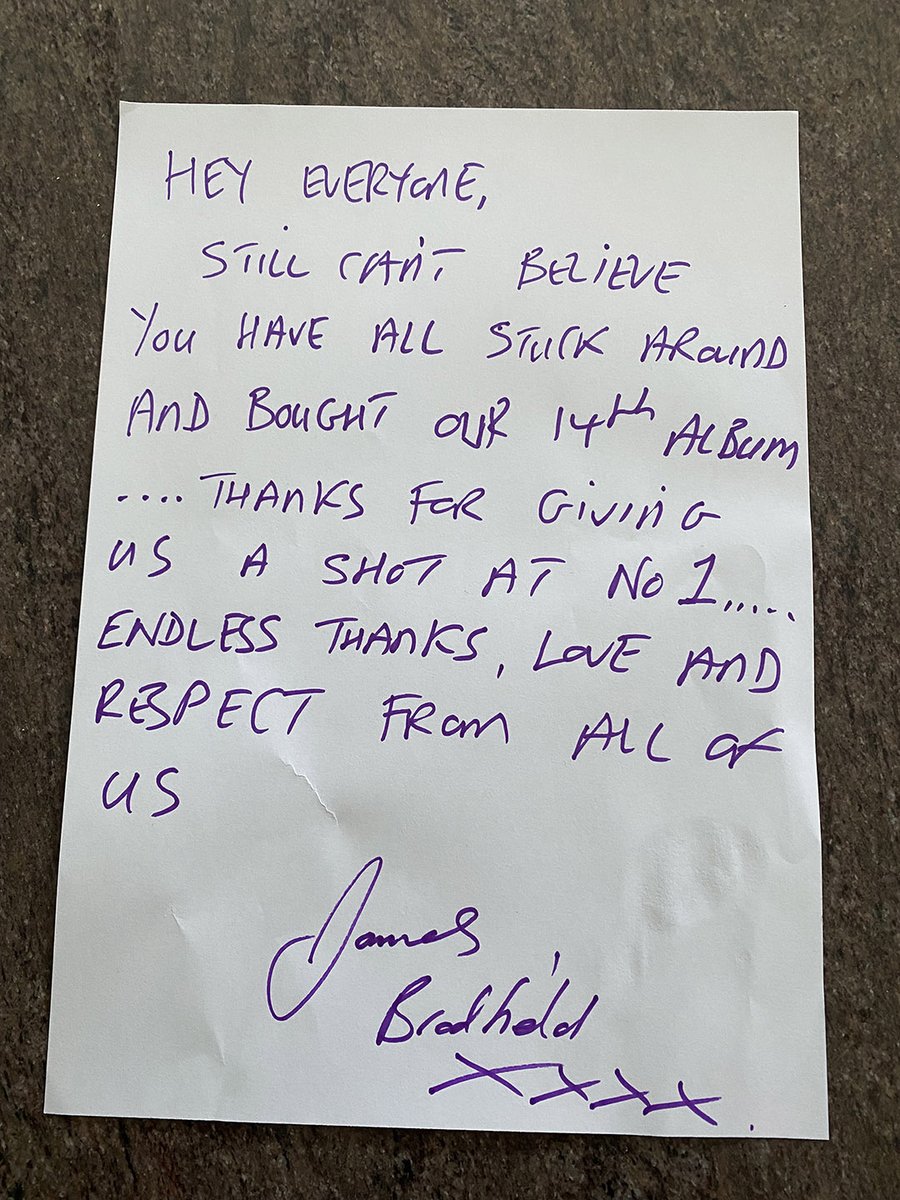 HEY EVERYONE,
STILL CAN'T BELIEVE
YOU HAVE ALL STUCK AROUND
AND BOUGHT OUR 14th ALBUM
.... THANKS FOR GIVING
US A SHOT AT NO 1.....
ENDLESS THANKS, LOVE AND
RESPECT FROM ALL OF
US
James
Bradfield
XXXX.